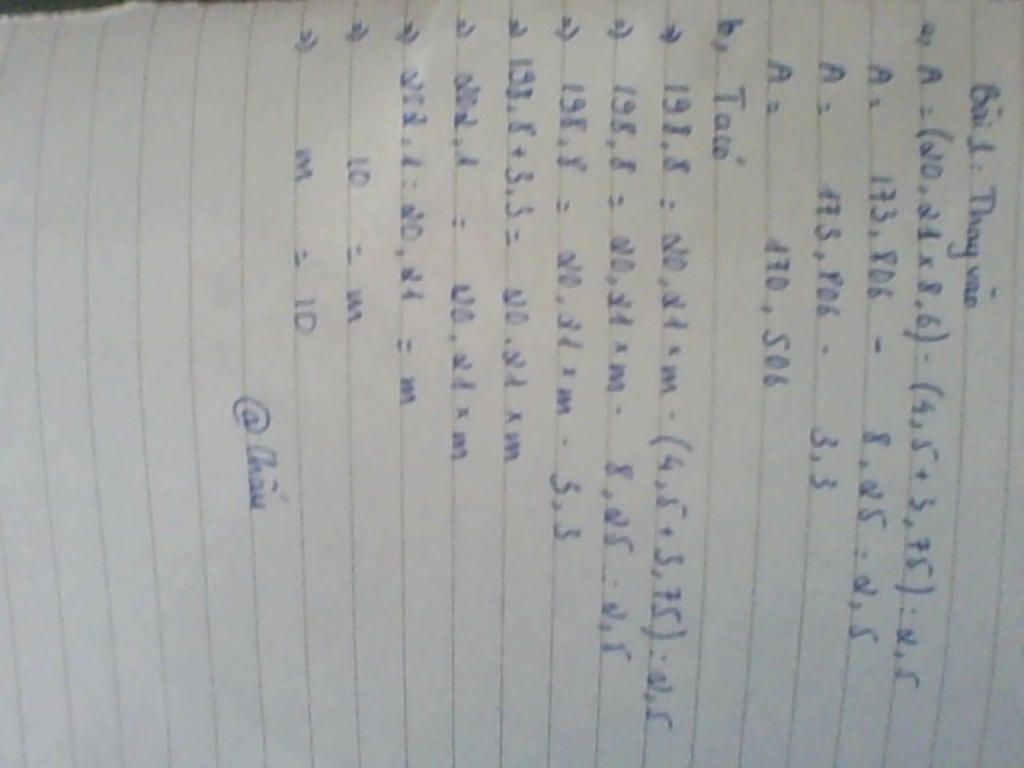 Bài 1: Thay vào
a, A = (20,21 × 8,6) - (4,5 + 3,75) : 2,5
A = 173,806 - 8,25 : 2,5
A = 173,806 - 3,3
A = 170,506
b, Ta có
=> 198,8 = 20,21 × m - (4,5 + 3,75) : 2,5
=> 198,8 = 20,21 × m - 8,25 : 2,5
=> 198,8 = 20,21 × m - 3,3
=> 198,8 + 3,3 = 20,21 × m
=> 202,1 = 20,21 × m
=> 202,1 : 20,21 = m
=> 10 = m
=> m = 10
@Châu